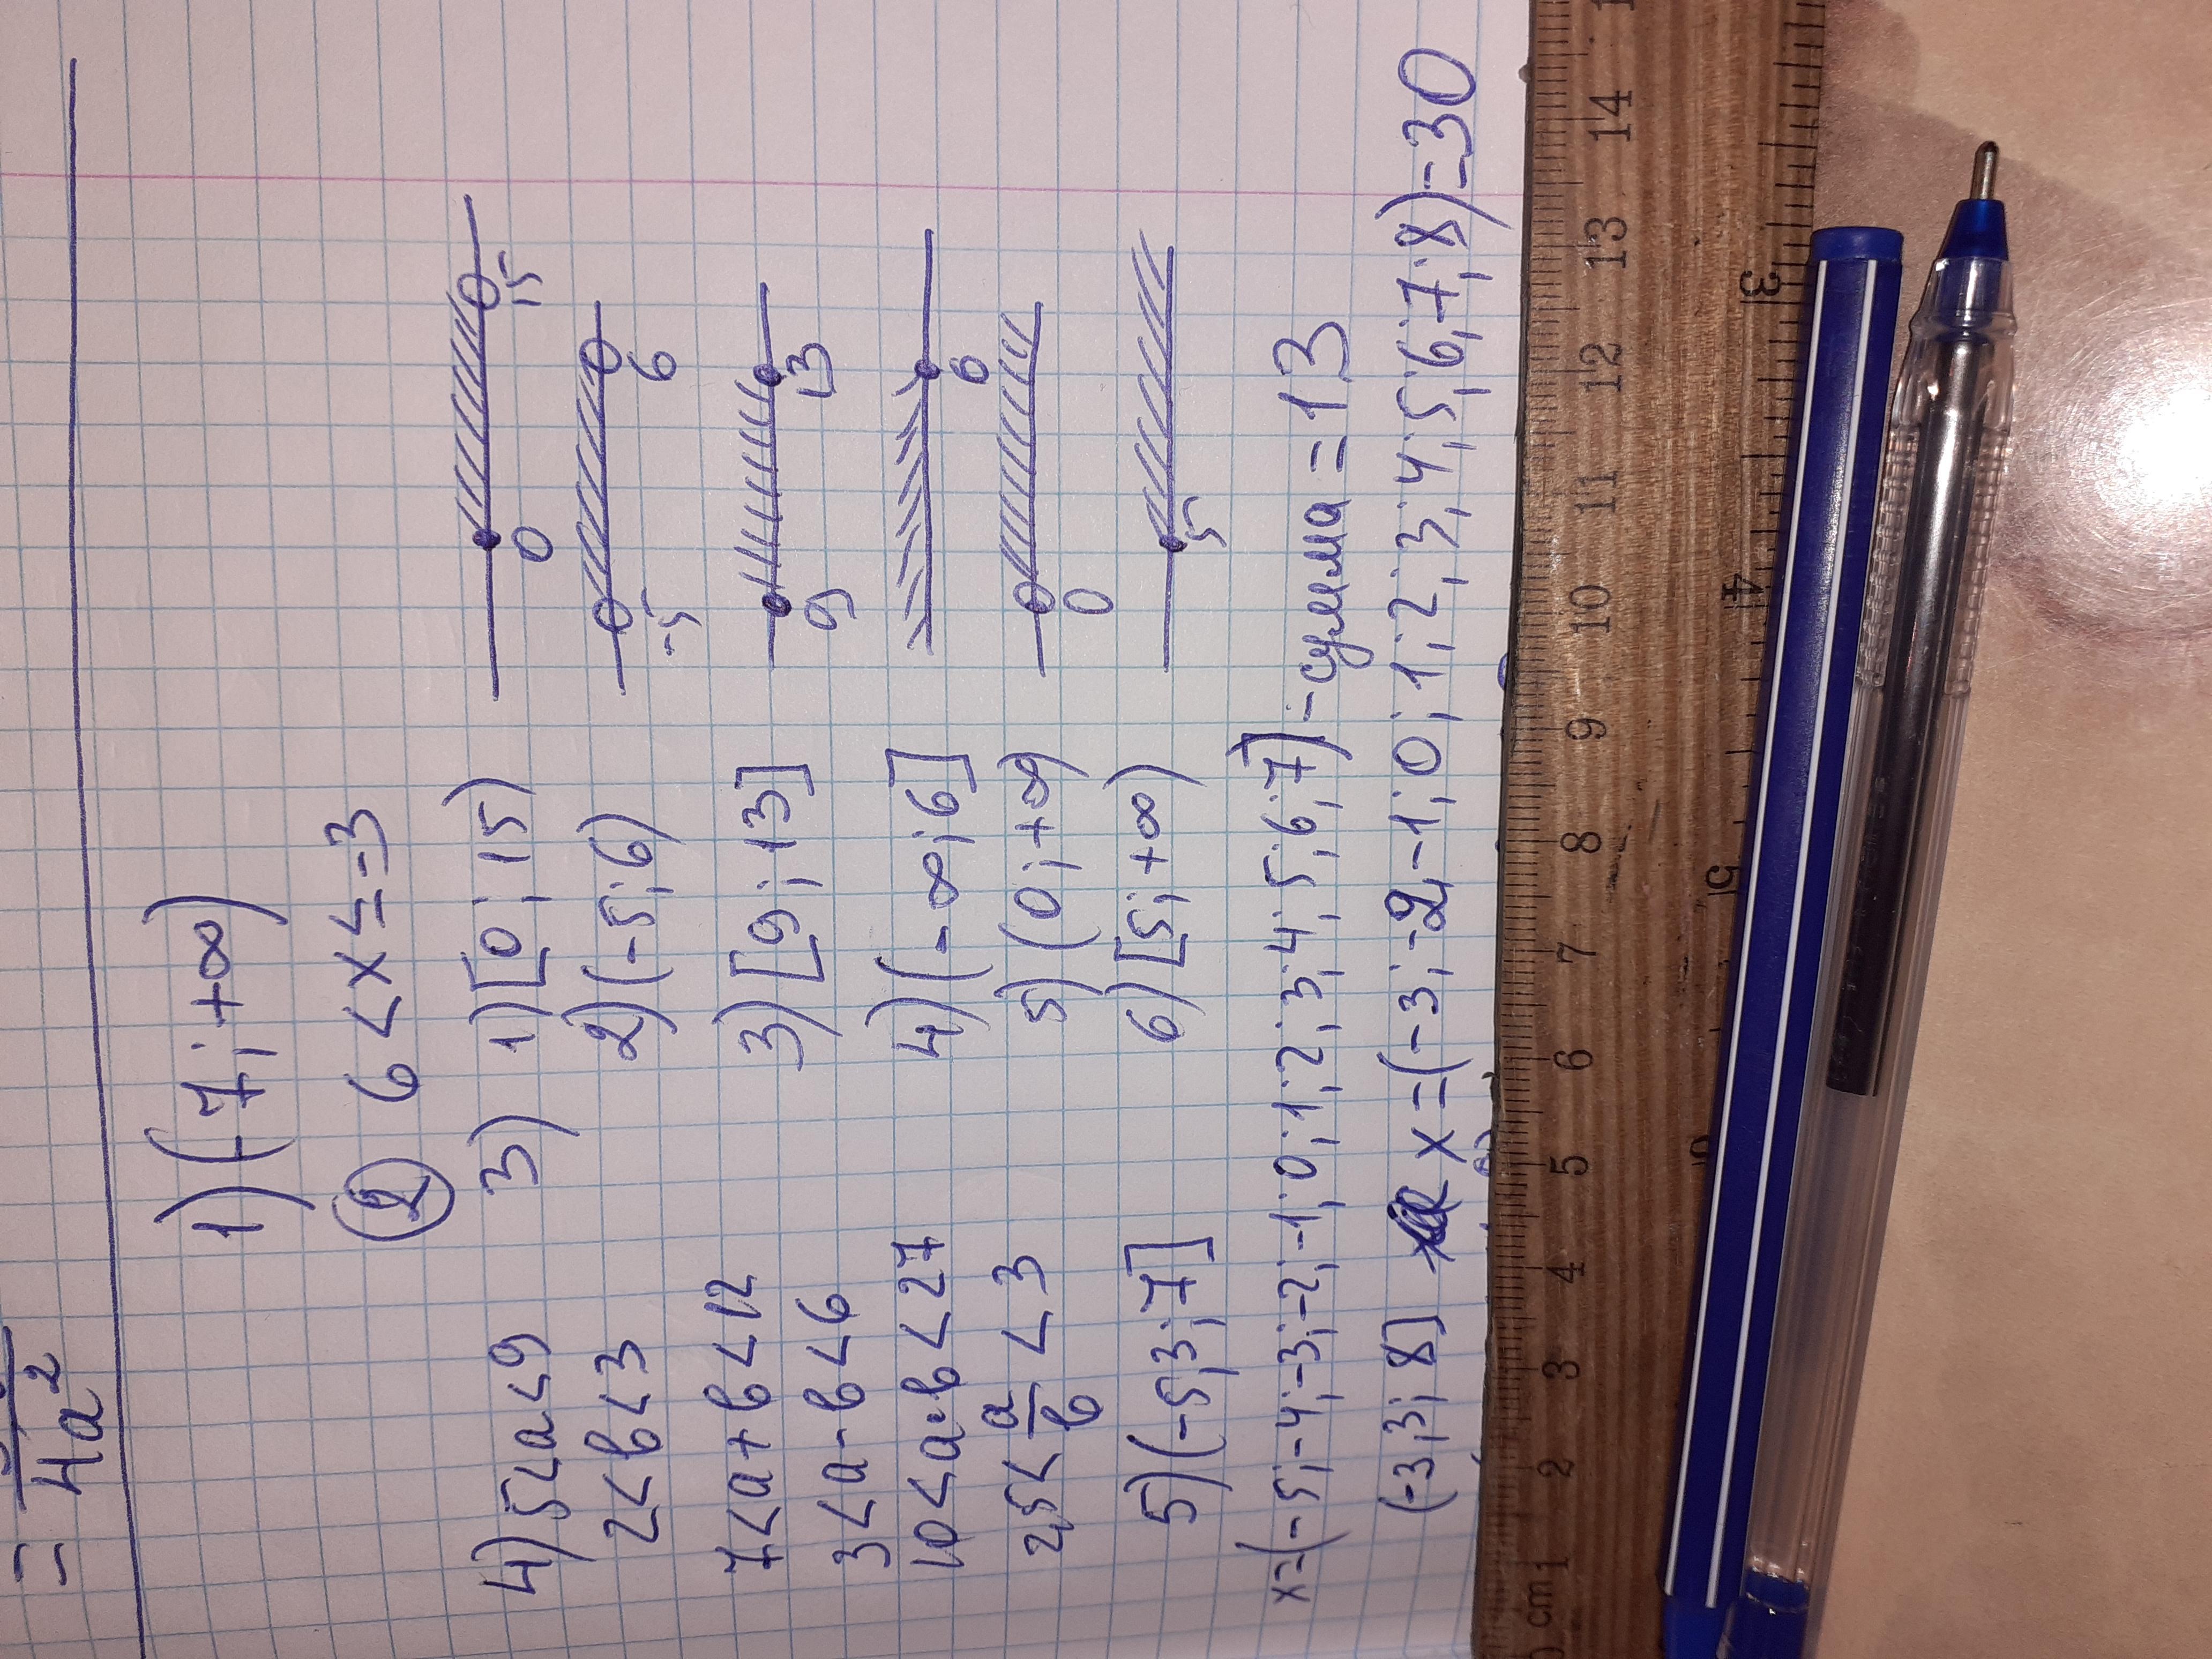 = 4a²
1) (-7; +∞)
② 6 < x ≤ -3
3) 1) [0; 15)
0 15
2) (-5; 6)
-5 6
3) [9; 13]
9 13
4) (-∞; 6]
6
5) (0; +∞)
0
6) [5; +∞)
5
4) 5 < a < 9
2 < b < 3
7 < a + b < 12
3 < a - b < 6
10 < a·b < 27
2,5 < a/b < 3
5) (-5,3; 7]
x = (-5; -4; -3; -2; -1; 0; 1; 2; 3; 4; 5; 6; 7) - сума = 13
(-3,3; 8] x = (-3; -2, -1; 0; 1; 2; 3; 4; 5; 6; 7; 8) = 30
0 cm 1 2 3 4 5 6 7 8 9 10 11 12 13 14
3 4 5